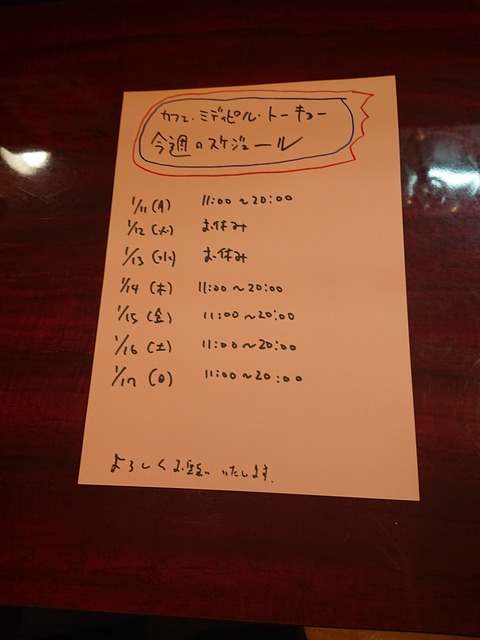 カフェ・ミディピル・トーキョー
今週のスケジュール
1/11(月) 11:00~20:00
1/12(火) お休み
1/13(水) お休み
1/14(木) 11:00~20:00
1/15(金) 11:00~20:00
1/16(土) 11:00~20:00
1/17(日) 11:00~20:00
よろしくお願いいたします.